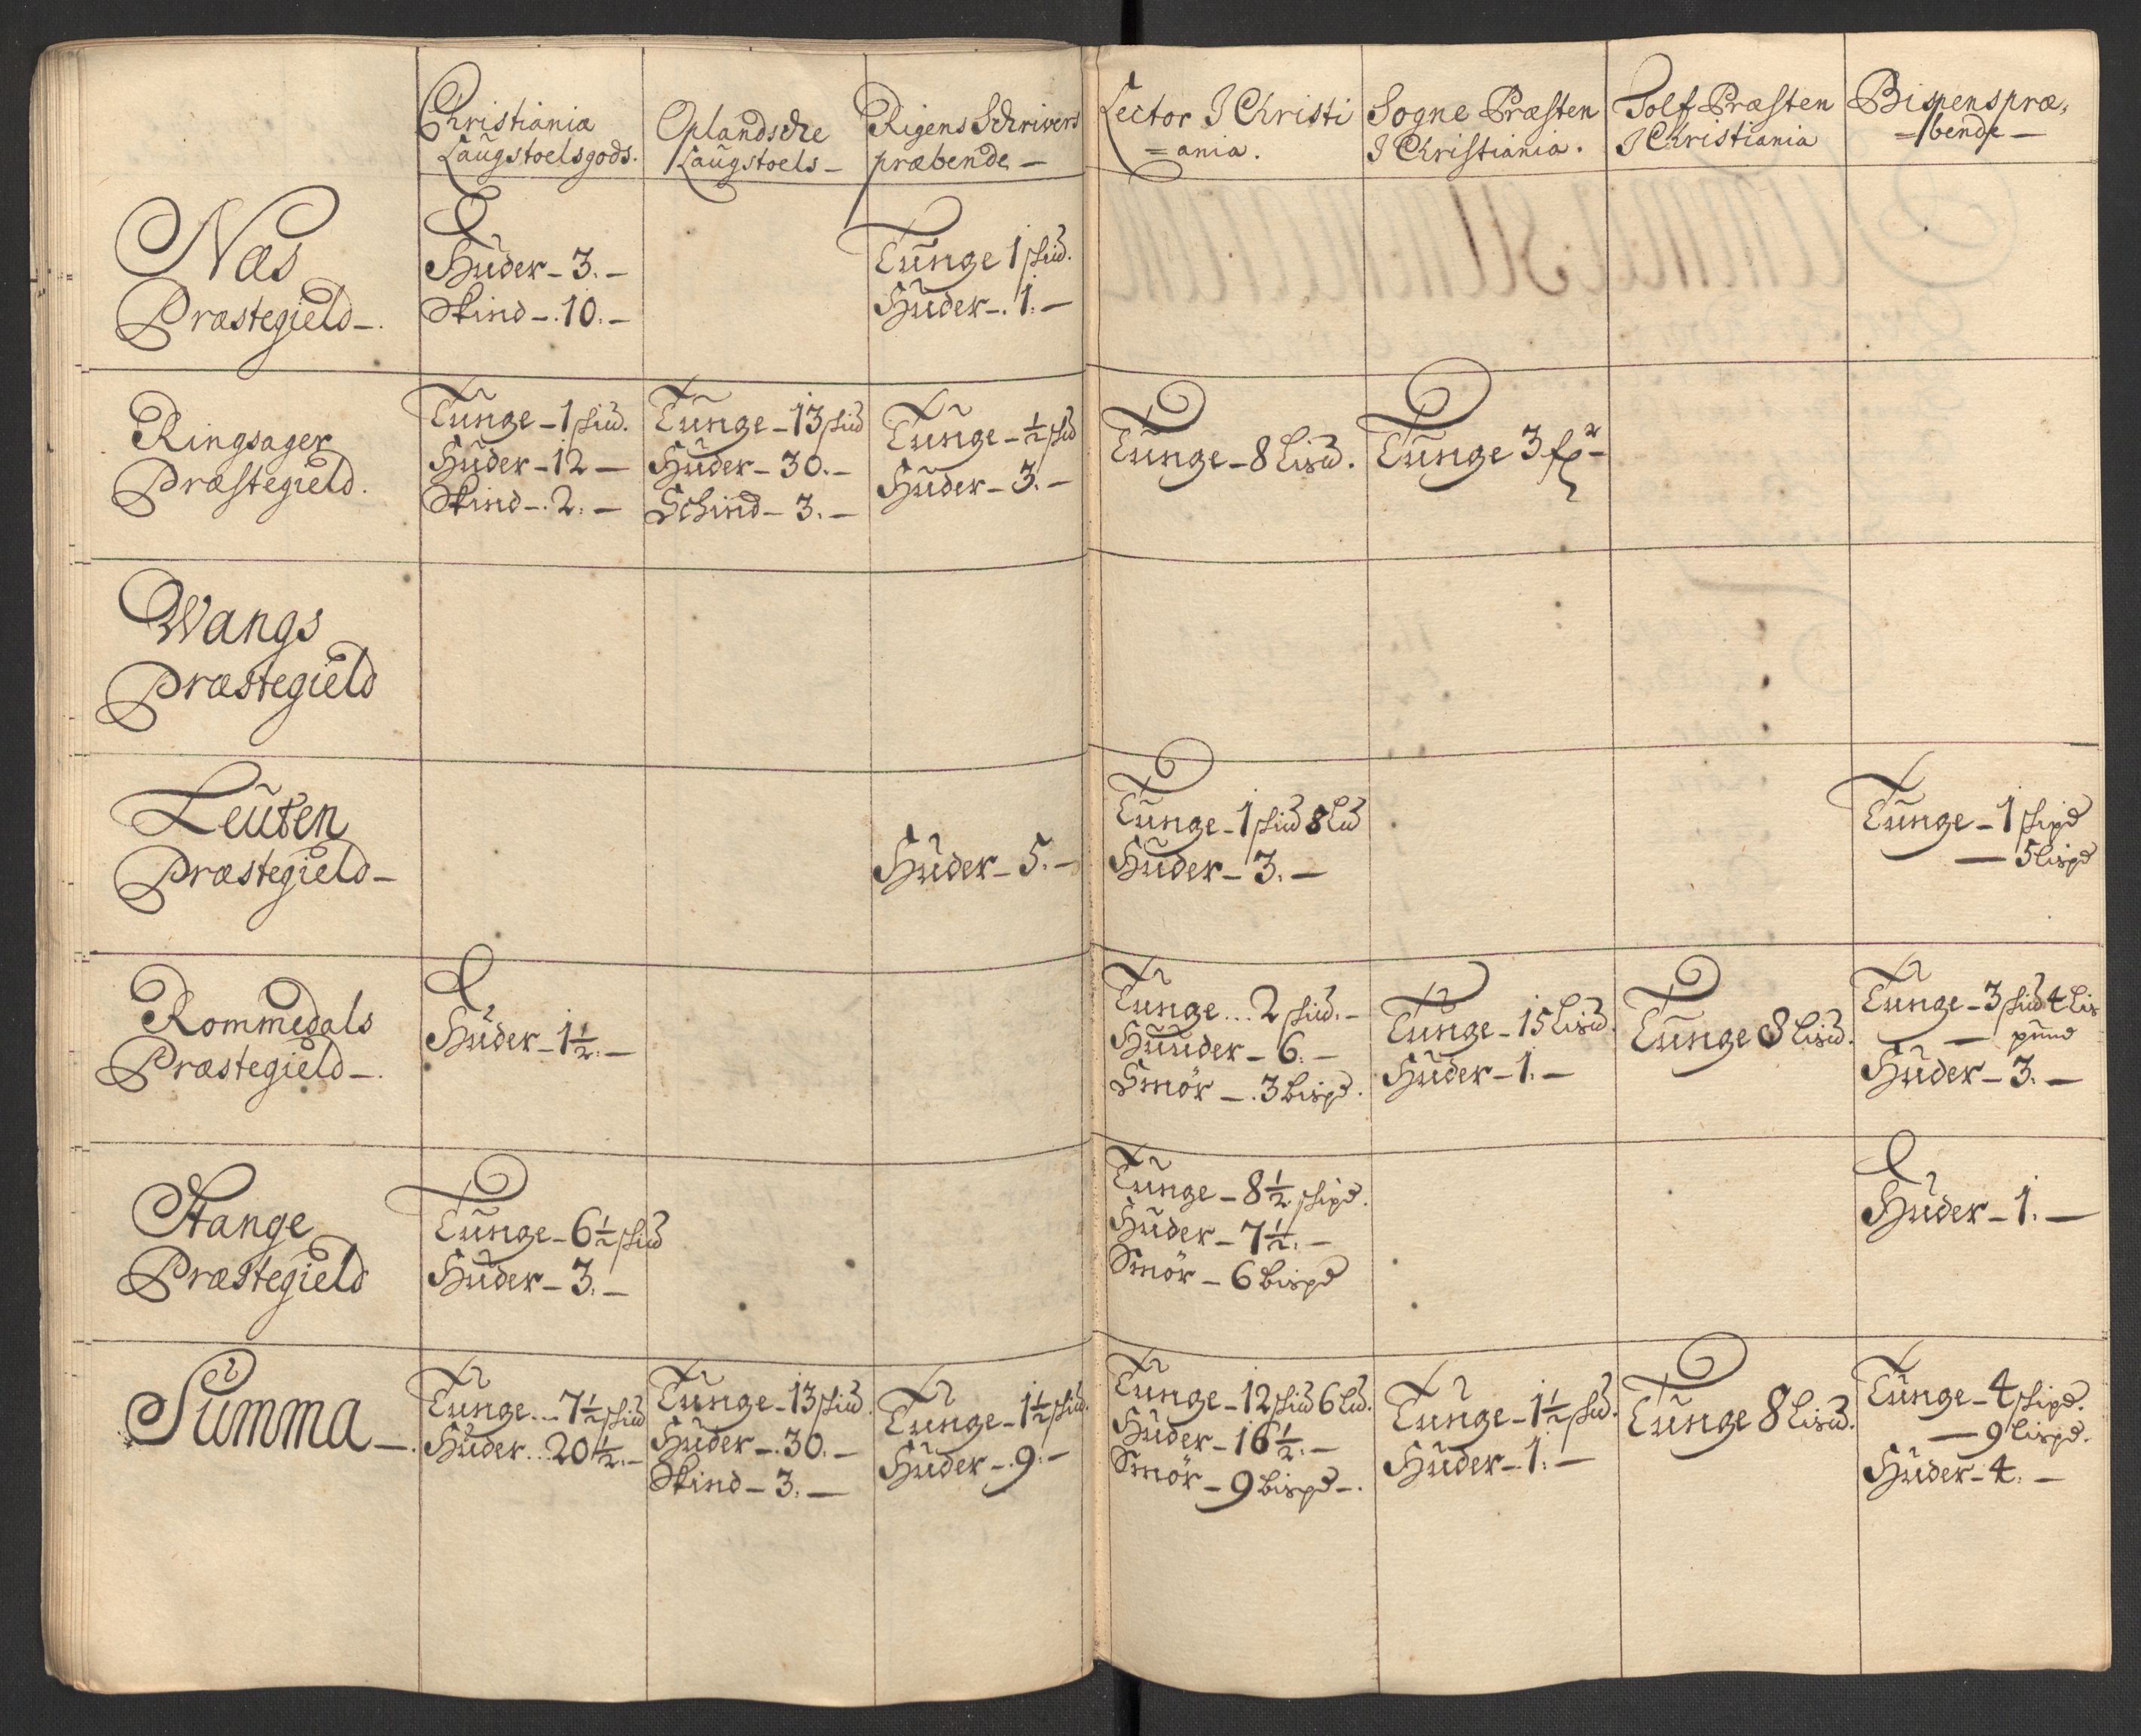 Christiania
Laugstoelsgods.
Oplandsche
Laugstoels –
Rigens Schrivers
præbende –
Lector I Christi
= ania.
Sogne Præsten
I Christiania.
Tolf Præsten
I Christiania
Bispens præ,
= bende –
Næs
Præstegield –.
Huder – 3. –
Skind –. 10. –
Tunge 1 skud.
Huder –. 1. –
Ringsager
Præstegield.
Tunge – 1 skud.
Huder – 12 –
Skind –. 2. –
Tunge – 13 skud
Huder – 30. –
Schind – 3. –
Tunge – ½ skud
Huder – 3. –
Tunge – 8 Lisud.
Tunge 3
Wangs
Præstegield
Leuten
Præstegield –
Huder – 5. –
Tunge – 1 skud 8 Lud
Huder – 3. –
Tunge – 1 skipd
— 5 lispd
Rommedals
Præstegield –.
Huder – 1½. –
Tunge... 2 skud. –
Huuder – 6. –
Smör –. 3 Bispd.
Tunge – 15 Lisud.
Huder – 1. –
Tunge 8 Lisud.
Tunge – 3 skud 4 Lis
— pund
Huder – 3. –
Stange
Præstegield
Tunge – 6½ skud
Huder – 3. –
Tunge – 8½ skipd.
Huder – 7½. –
Smör – 6 Bispd
Huder – 1. –
Summa –.
Tunge... 7½ skud
Huder... 20½. –
Tunge – 13 skud.
Huder –. 30. –
Skind – 3. –
Tunge – 1½ skud.
Huder –. 9. –
Tunge – 12 skud 6 Lud.
Huder – 16½. –
Smör – 9 Bispd –.
Tunge – 1½ skud.
Huder – 1. –
Tunge 8 Lisud.
Tunge – 4 skipd.
— 9 lispd.
Huder – 4. –